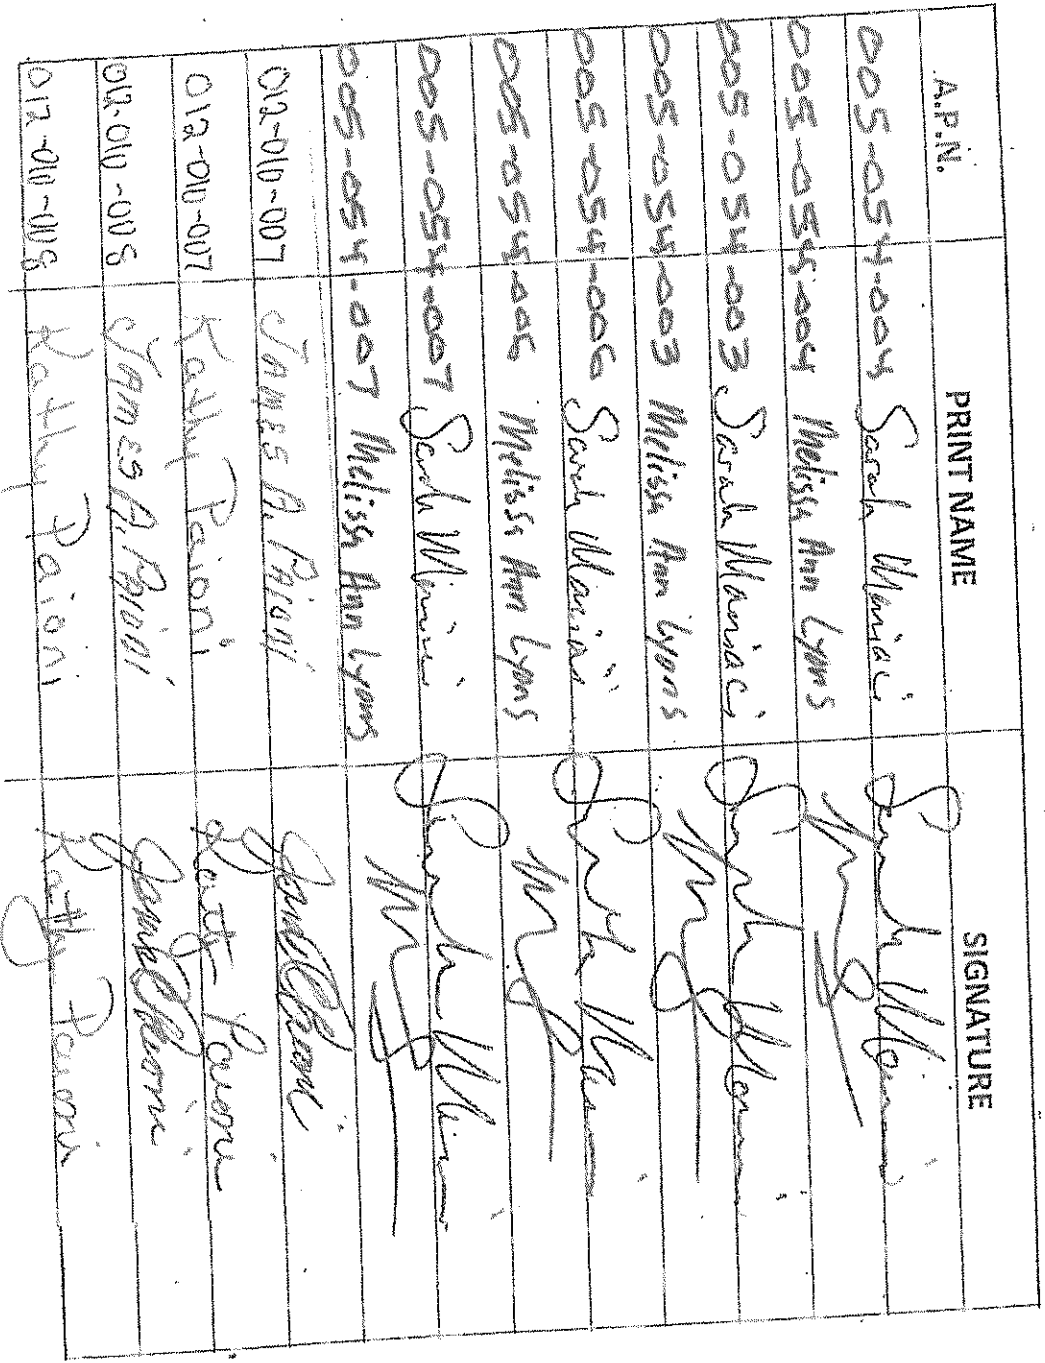 A.P.N. PRINT NAME SIGNATURE
005-054-004 Sarah Maniaci
005-054-004 Melissa Ann Lyons
005-054-003 Sarah Maniaci
005-054-003 Melissa Ann Lyons
005-054-006 Sarah Maniaci
005-054-006 Melissa Ann Lyons
005-054-007 Sarah
005-054-007 Melissa Ann Lyons
012-010-007 James A. Paioni
012-010-007 Kathy Paioni Kathy Paioni
012-010-008 James A. Paioni
012-010-008 Kathy Paioni Kathy Paioni